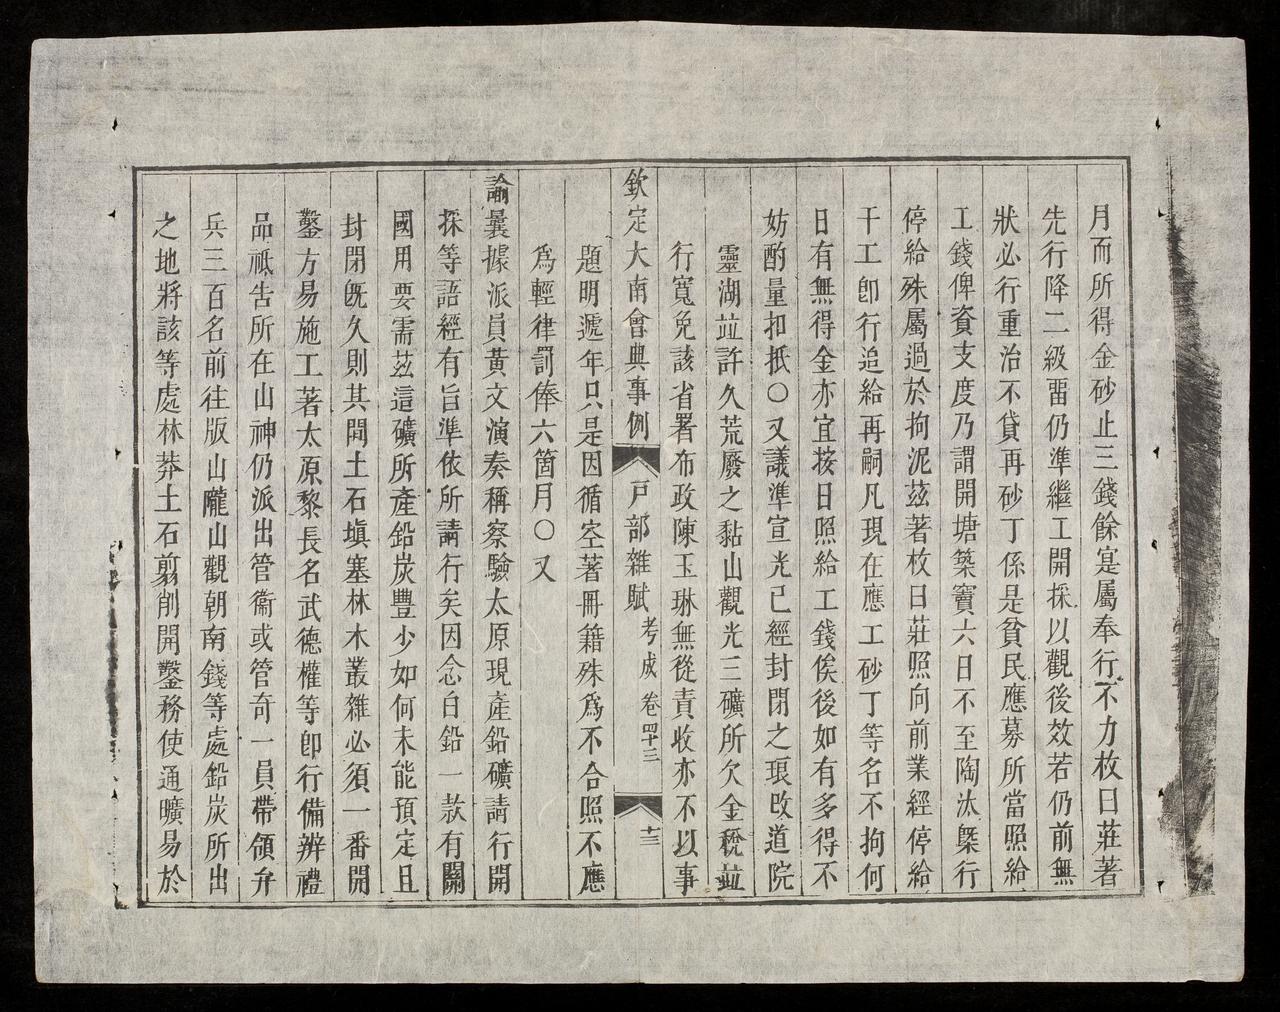 月而所得金砂止三錢餘寔屬奉行不力枚曰莊著
先行降二級畱仍準繼工開採以觀後效若仍前無
狀必行重治不貸再砂丁係是貧民應募所當照給
工錢俾資支度乃謂開塘築寶六日不至陶汰槩行
停給殊屬過於拘泥茲著枚曰莊照向前業經停給
干工卽行追給再嗣凡現在應工砂丁等名不拘何
日有無得金亦宜按日照給工錢俟後如有多得不
妨酌量扣抵〇又議準宣光已經封閉之琅𢻫道院
靈湖並許久荒廢之黏山觀光三礦所欠金稅並
行寬免該省署布政陳玉琳無從責收亦不以事
欽定大南會典事例 戸部雜賦 考成 卷四十三 十三
題明遞年只是因循空著冊籍殊爲不合照不應
爲輕律罰俸六箇月〇又
諭曩據派員黃文演奏稱察驗太原現產鉛礦請行開
採等語經有旨準依所請行矣因念白鉛一款有關
國用要需茲這礦所產鉛炭豐少如何未能預定且
封閉旣久則其間土石塡塞林木叢雜必須一番開
鑿方易施工著太原黎長名武德權等卽行備辨禮
品祗告所在山神仍派出管衞或管奇一員帶領弁
兵三百名前往版山隴山觀朝南錢等處鉛炭所出
之地將該等處林莽土石剪削開鑿務使通曠易於